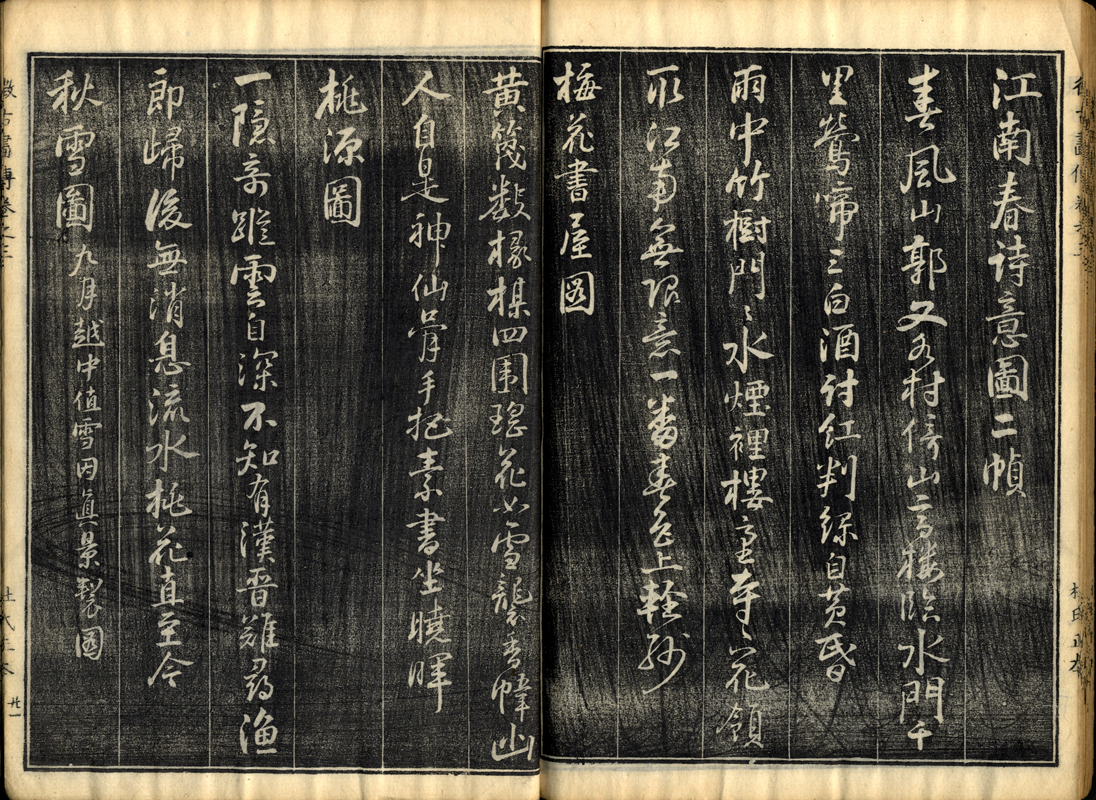 江南春詩意圖二幀
春風山郭又水村倚山高樓臨水門千
里鶯啼三白酒討紅判綠自黃昏
雨中竹樹門〻水煙裡樓臺寺〻花領
取江南無限意一番春色上輕紗
梅花書屋圖
黃篾數椽棋四圍瑤花如雪襲香幃山
人自是神仙骨手把素書坐曉暉
桃源圖
一隱奇蹤雲自深不知有漢晉難尋漁
郎歸後無消息流水桃花直至今
秋雪圖 九月越中值雪因眞景製圖
廿一